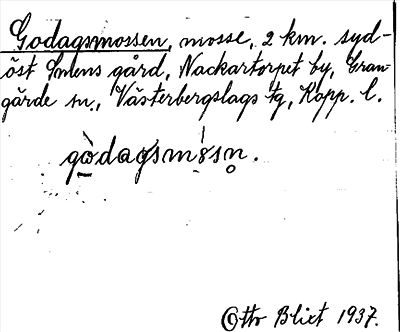 Godagsmossen, mosse, 2 km. syd-
öst Smens gård, Nackartorpet by, Gran-
gärde sn., Västerbergslags tg, Kopp. l.
gòdagsmósn.
Otto Blixt 1937.